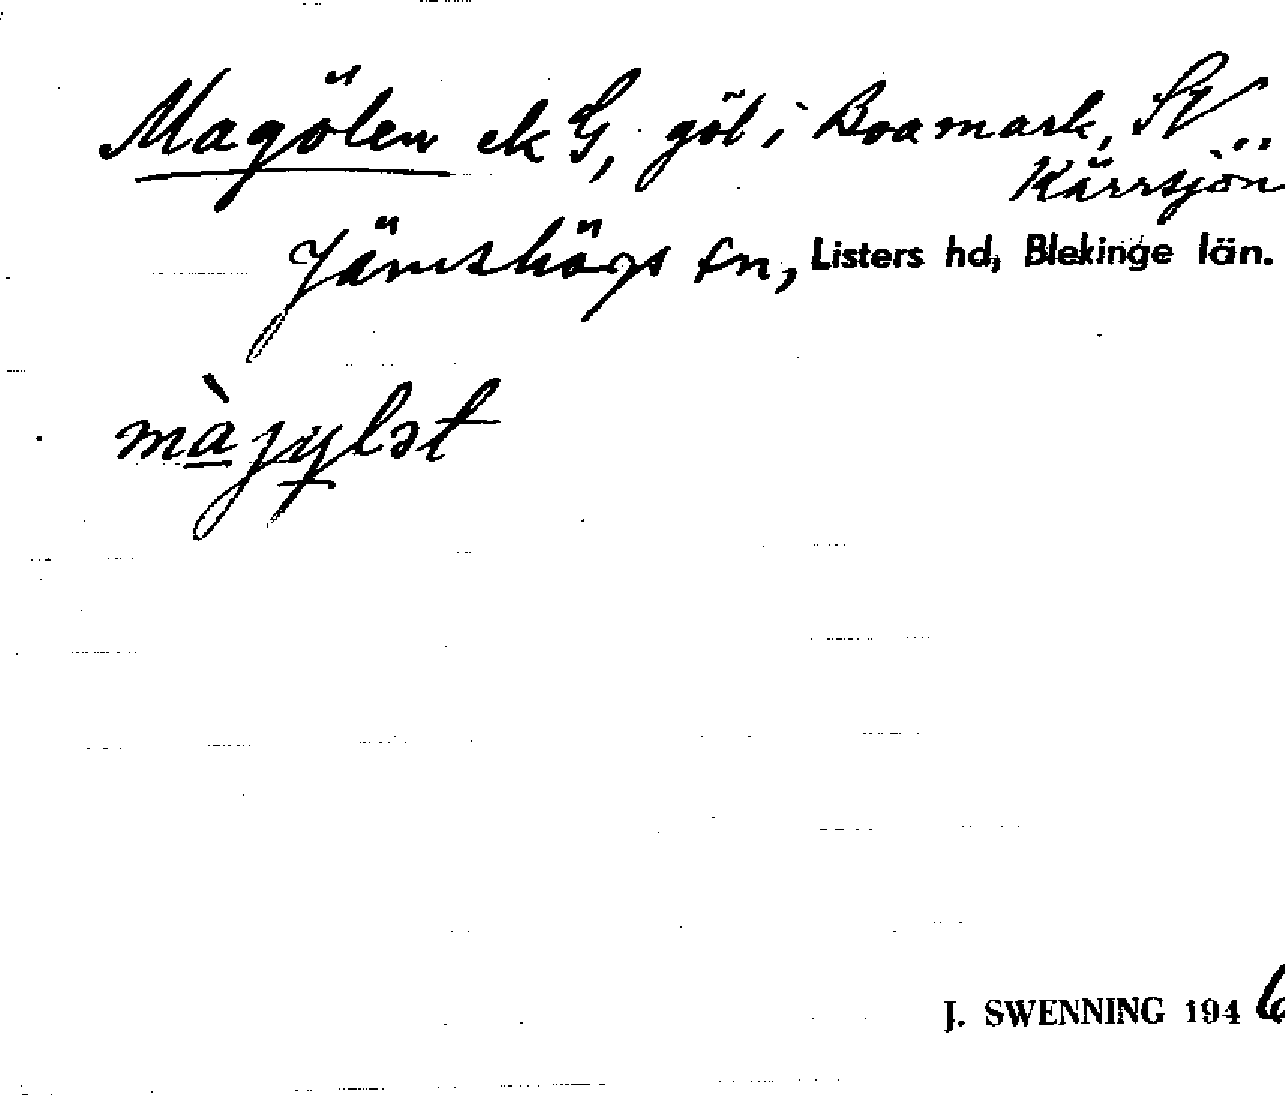 Magölen ek G, göl i Boamark, St.
Kärrsjön
Jämshögs sn, Listers hd, Blekinge län.
màjylət
J. SWENNING 1946